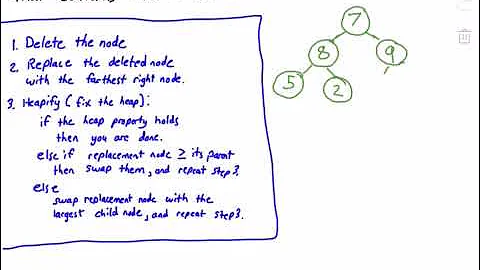 1. Delete the node
2. Replace the deleted node
with the farthest right node.
3. Heapify (fix the heap):
if the heap property holds
then you are done.
else if replacement node ≥ its parent
then swap them, and repeat step 3.
else
swap replacement node with the
largest child node, and repeat step 3.
7
8 9
5 2